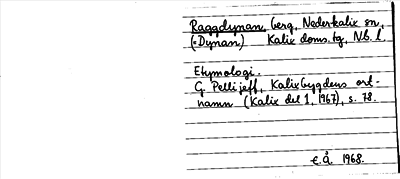 Raggdynan, berg, Nederkalix sn,
(=Dynan) Kalix doms.tg, Nb. l.
Etymologi.
G. Pellijeff, Kalixbygdens ort-
namn (Kalix del 1, 1967), s. 78.
E.Å 1968.